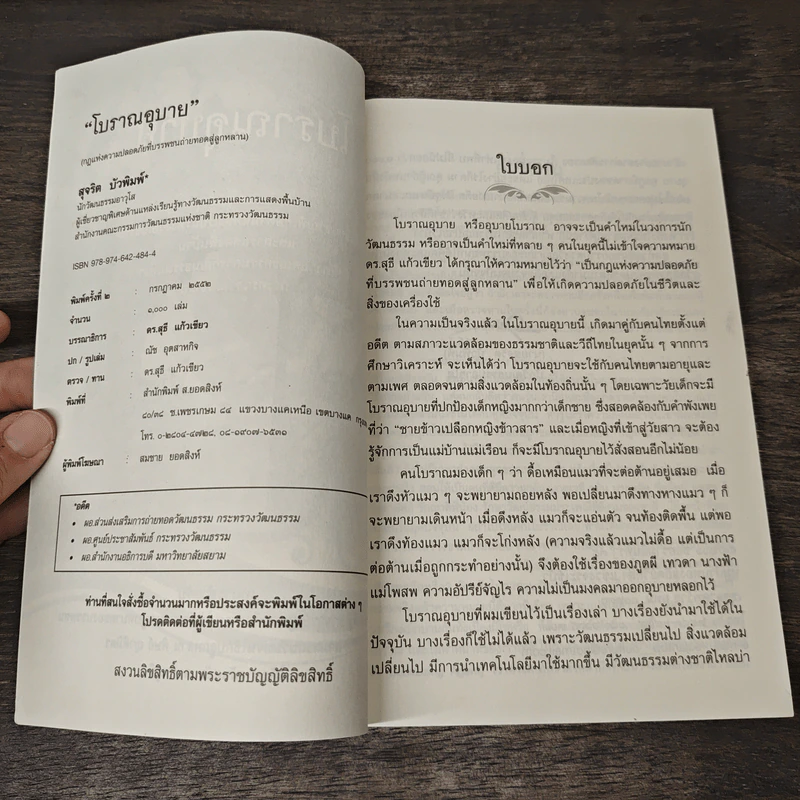 “โบราณอุบาย”
(กฎแห่งความปลอดภัยที่บรรพชนถ่ายทอดสู่ลูกหลาน)
สุจริต บัวพิมพ์*
นักวัฒนธรรมอาวุโส
ผู้เชี่ยวชาญพิเศษด้านแหล่งเรียนรู้ทางวัฒนธรรมและการแสดงพื้นบ้าน
สำนักงานคณะกรรมการวัฒนธรรมแห่งชาติ กระทรวงวัฒนธรรม
ISBN 978-974-642-484-4
พิมพ์ครั้งที่ ๒ : กรกฎาคม ๒๕๕๒
จำนวน : ๑,๐๐๐ เล่ม
บรรณาธิการ : ดร.สุธี แก้วเขียว
ปก / รูปเล่ม : ณัช อุตสาหกิจ
ตรวจ / ทาน : ดร.สุธี แก้วเขียว
พิมพ์ที่ : สำนักพิมพ์ ส.ยอดสิงห์
๘๐/๓๘ ซ.เพชรเกษม ๘๔ แขวงบางแคเหนือ เขตบางแค
โทร. ๐-๒๘๐๔-๔๗๒๘, ๐๘-๑๙๐๗-๖๕๓๑
ผู้พิมพ์โฆษณา : สมชาย ยอดสิงห์
*อดีต
• ผอ.ส่วนส่งเสริมการถ่ายทอดวัฒนธรรม กระทรวงวัฒนธรรม
• ผอ.ศูนย์ประชาสัมพันธ์ กระทรวงวัฒนธรรม
• ผอ.สำนักงานอธิการบดี มหาวิทยาลัยสยาม
ท่านที่สนใจสั่งซื้อจำนวนมากหรือประสงค์จะพิมพ์ในโอกาสต่าง ๆ
โปรดติดต่อที่ผู้เขียนหรือสำนักพิมพ์
สงวนลิขสิทธิ์ตามพระราชบัญญัติลิขสิทธิ์
ใบบอก
โบราณอุบาย หรืออุบายโบราณ อาจจะเป็นคำใหม่ในวงการนัก
วัฒนธรรม หรืออาจเป็นคำใหม่ที่หลาย ๆ คนในยุคนี้ไม่เข้าใจความหมาย
ดร.สุธี แก้วเขียว ได้กรุณาให้ความหมายไว้ว่า “เป็นกฎแห่งความปลอดภัย
ที่บรรพชนถ่ายทอดสู่ลูกหลาน” เพื่อให้เกิดความปลอดภัยในชีวิตและ
สิ่งของเครื่องใช้
ในความเป็นจริงแล้ว ในโบราณอุบายนี้ เกิดมาคู่กับคนไทยตั้งแต่
อดีต ตามสภาวะแวดล้อมของธรรมชาติและวิถีไทยในยุคนั้น ๆ จากการ
ศึกษาวิเคราะห์ จะเห็นได้ว่า โบราณอุบายจะใช้กับคนไทยตามอายุและ
ตามเพศ ตลอดจนตามสิ่งแวดล้อมในท้องถิ่นนั้น ๆ โดยเฉพาะวัยเด็กจะมี
โบราณอุบายที่ปกป้องเด็กหญิงมากกว่าเด็กชาย ซึ่งสอดคล้องกับคำพังเพย
ที่ว่า “ชายข้าวเปลือกหญิงข้าวสาร” และเมื่อหญิงที่เข้าสู่วัยสาว จะต้อง
รู้จักการเป็นแม่บ้านแม่เรือน ก็จะมีโบราณอุบายไว้สั่งสอนอีกไม่น้อย
คนโบราณมองเด็ก ๆ ว่า ดื้อเหมือนแมวที่จะต่อต้านอยู่เสมอ เมื่อ
เราดึงหัวแมว ๆ จะพยายามถอยหลัง พอเปลี่ยนมาดึงทางหางแมว ๆ ก็
จะพยายามเดินหน้า เมื่อดึงหลัง แมวก็จะแอ่นตัว จนท้องติดพื้น แต่พอ
เราดึงท้องแมว แมวก็จะโก่งหลัง (ความจริงแล้วแมวไม่ดื้อ แต่เป็นการ
ต่อต้านเมื่อถูกกระทำอย่างนั้น) จึงต้องใช้เรื่องของภูตผี เทวดา นางฟ้า
แม่โพสพ ความอัปรีย์จัญไร ความไม่เป็นมงคลมาออกอุบายหลอกไว้
โบราณอุบายที่ผมเขียนไว้เป็นเรื่องเล่า บางเรื่องยังนำมาใช้ได้ใน
ปัจจุบัน บางเรื่องก็ใช้ไม่ได้แล้ว เพราะวัฒนธรรมเปลี่ยนไป สิ่งแวดล้อม
เปลี่ยนไป มีการนำเทคโนโลยีมาใช้มากขึ้น มีวัฒนธรรมต่างชาติไหลบ่า